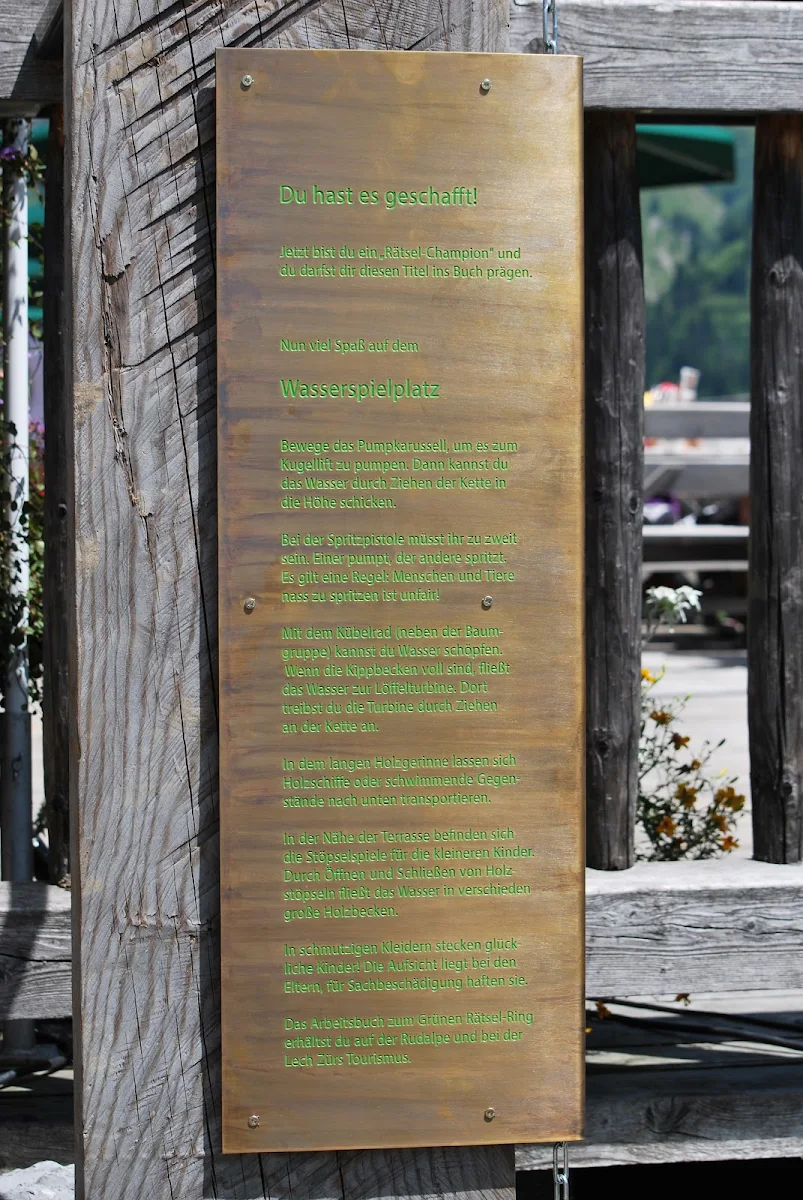 Du hast es geschafft!
Jetzt bist du ein „Rätsel-Champion“ und
du darfst dir diesen Titel ins Buch prägen.
Nun viel Spaß auf dem
Wasserspielplatz
Bewege das Pumpkarussell, um es zum
Kugellift zu pumpen. Dann kannst du
das Wasser durch Ziehen der Kette in
die Höhe schicken.
Bei der Spritzpistole müsst ihr zu zweit
sein. Einer pumpt, der andere spritzt.
Es gilt eine Regel: Menschen und Tiere
nass zu spritzen ist unfair!
Mit dem Kübelrad (neben der Baum-
gruppe) kannst du Wasser schöpfen.
Wenn die Kippbecken voll sind, fließt
das Wasser zur Löffelturbine. Dort
treibst du die Turbine durch Ziehen
an der Kette an.
In dem langen Holzgerinne lassen sich
Holzschiffe oder schwimmende Gegen-
stände nach unten transportieren.
In der Nähe der Terrasse befinden sich
die Stöpselspiele für die kleineren Kinder.
Durch Öffnen und Schließen von Holz-
stöpseln fließt das Wasser in verschieden
große Holzbecken.
In schmutzigen Kleidern stecken glück-
liche Kinder! Die Aufsicht liegt bei den
Eltern, für Sachbeschädigung haften sie.
Das Arbeitsbuch zum Grünen Rätsel-Ring
erhältst du auf der Rudalpe und bei der
Lech Zürs Tourismus.